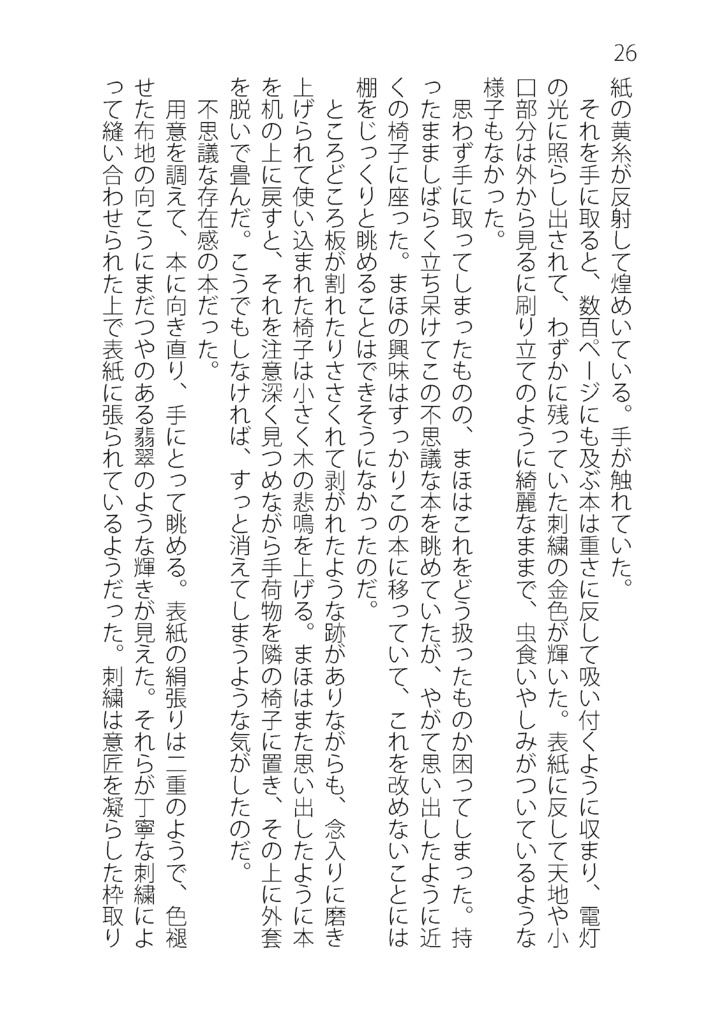 26
紙の黄糸が反射して煌めいている。手が触れていた。
　それを手に取ると、数百ページにも及ぶ本は重さに反して吸い付くように収まり、電灯
の光に照らし出されて、わずかに残っていた刺繍の金色が輝いた。表紙に反して天地や小
口部分は外から見るに刷り立てのように綺麗なままで、虫食いやしみがついているような
様子もなかった。
　思わず手に取ってしまったものの、まほはこれをどう扱ったものか困ってしまった。持
ったまましばらく立ち呆けてこの不思議な本を眺めていたが、やがて思い出したように近
くの椅子に座った。まほの興味はすっかりこの本に移っていて、これを改めないことには
棚をじっくりと眺めることはできそうになかったのだ。
　ところどころ板が割れたりささくれて剥がれたような跡がありながらも、念入りに磨き
上げられて使い込まれた椅子は小さく木の悲鳴を上げる。まほはまた思い出したように本
を机の上に戻すと、それを注意深く見つめながら手荷物を隣の椅子に置き、その上に外套
を脱いで畳んだ。こうでもしなければ、すっと消えてしまうような気がしたのだ。
　不思議な存在感の本だった。
　用意を調えて、本に向き直り、手にとって眺める。表紙の絹張りは二重のようで、色褪
せた布地の向こうにまだつやのある翡翠のような輝きが見えた。それらが丁寧な刺繍によ
って縫い合わせられた上で表紙に張られているようだった。刺繍は意匠を凝らした枠取り